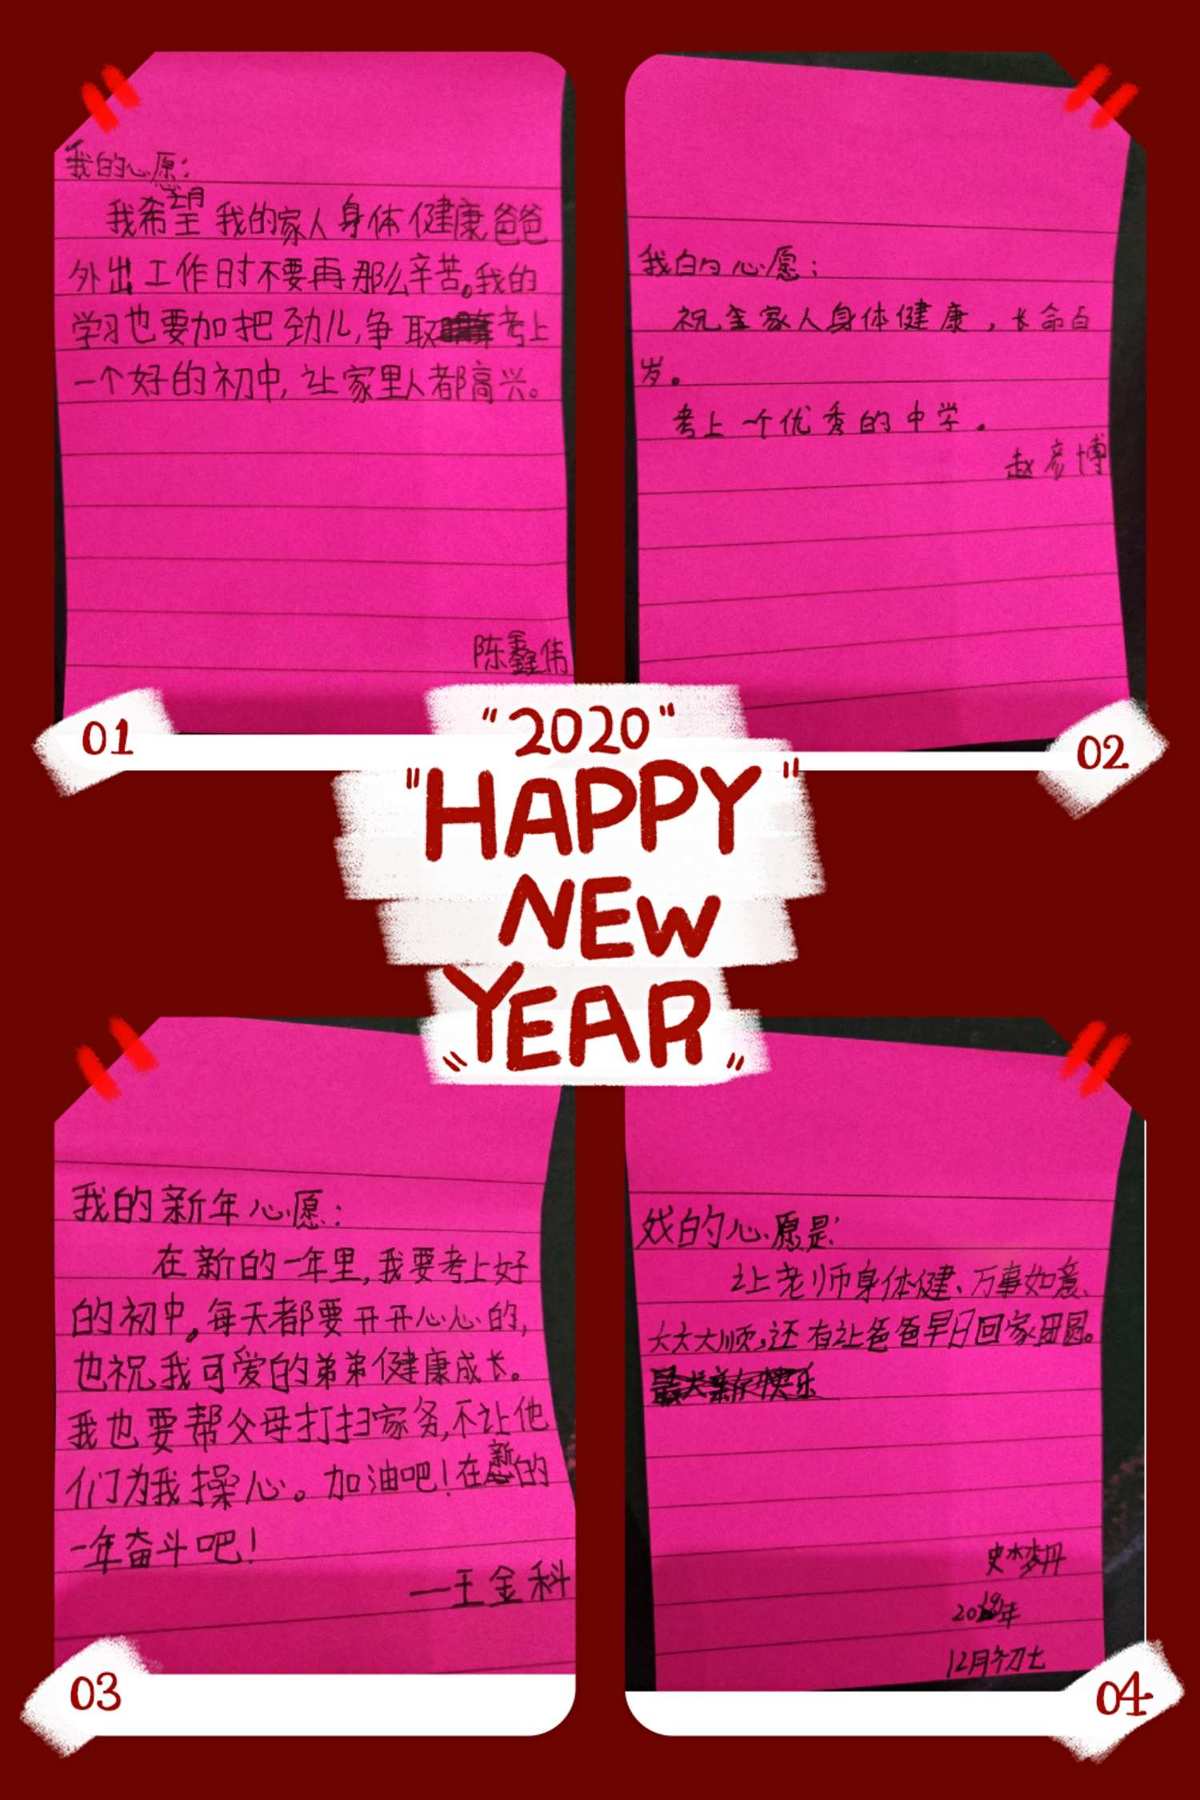 我的心愿：
我希望我的家人身体健康爸爸
外出工作时不要再那么辛苦。我的
学习也要加把劲儿,争取考上
一个好的初中,让家里人都高兴。
陈鑫伟
01
我的心愿：
祝全家人身体健康，长命百
岁。
考上一个优秀的中学。
赵彦博
02
"2020"
"HAPPY"
NEW
"YEAR"
我的新年心愿：
在新的一年里,我要考上好
的初中。每天都要开开心心的,
也祝我可爱的弟弟健康成长。
我也要帮父母打扫家务,不让他
们为我操心。加油吧!在新的
一年奋斗吧!
—王金科
03
我的心愿是：
让老师身体健、万事如意、
大大顺,还有让爸爸早日回家团圆。
史梦丹
2019年
12月初七
04